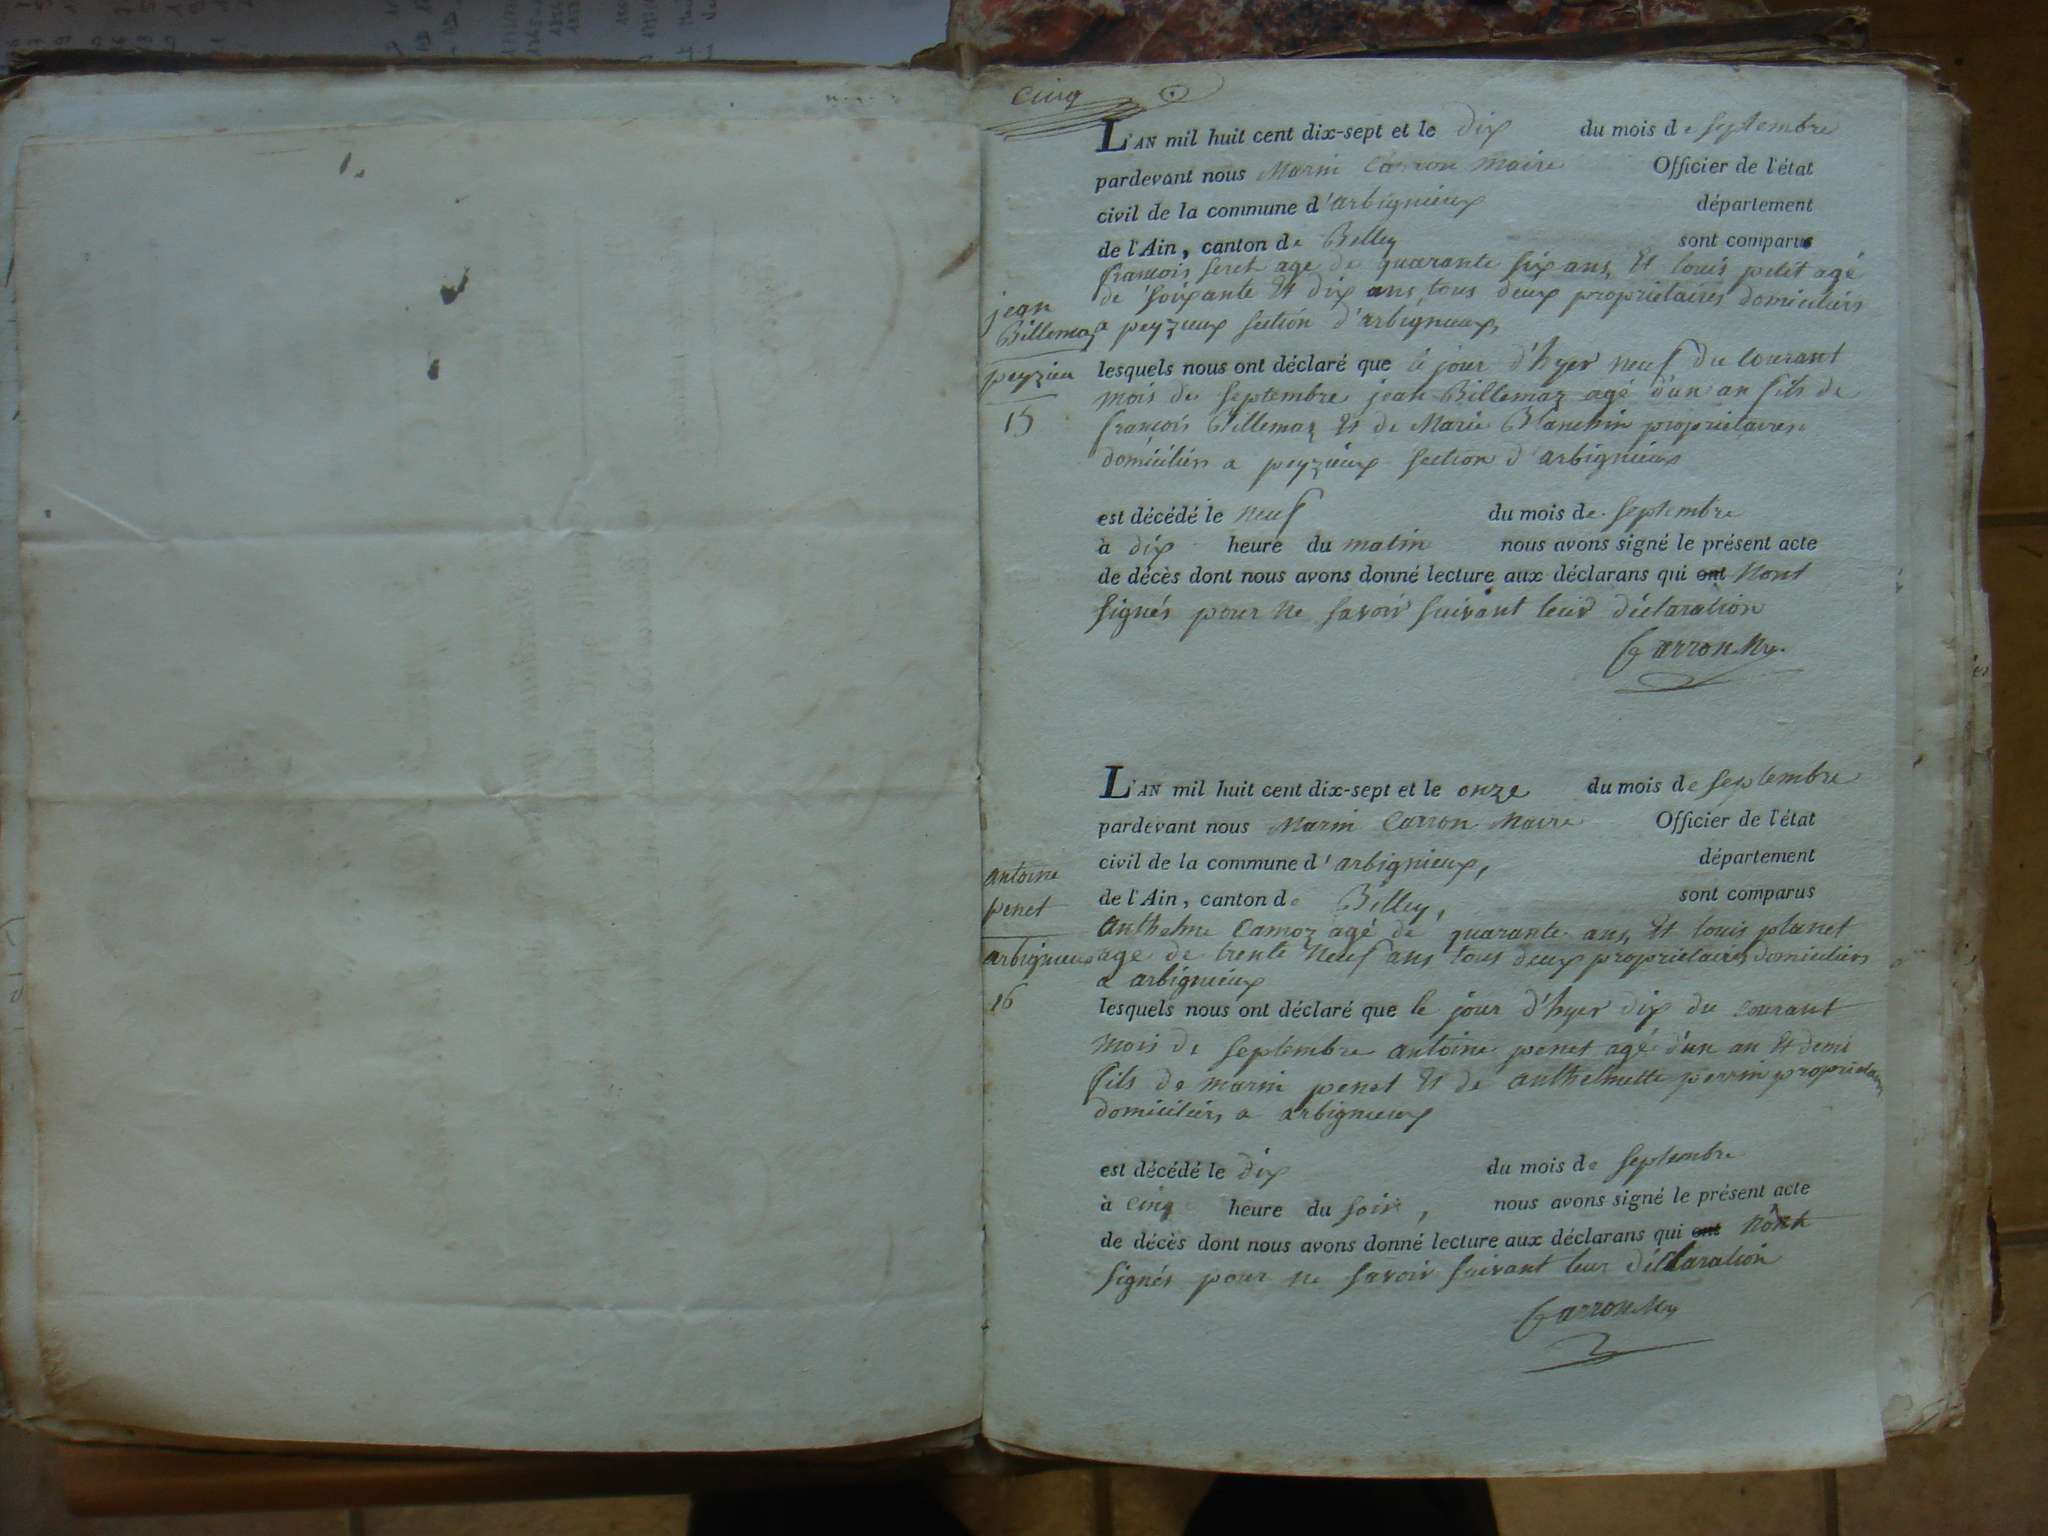 cinq
L'AN mil huit cent dix-sept et le dix du mois de septembre
pardevant nous Marin Carron Maire Officier de l'état
civil de la commune d'arbignieux département
de l'Ain, canton de Belley sont comparus
francois seret age de quarante six ans, Et louis petit agé
de soixante Et dix ans, tous deux proprietaires domiciliers
a peyzieux section d'arbignieux,
jean
Billemaz
peyzieu
15
lesquels nous ont déclaré que le jour d'hyer neuf du Courant
mois de septembre jean Billemaz agé d'un an fils de
francois Billemaz Et de Marie Blanchin proprietaires
domiciliers a peyzieux section d'arbignieux
est décédé le neuf du mois de septembre
à dix heure du matin nous avons signé le présent acte
de décès dont nous avons donné lecture aux déclarans qui ont Nont
signés pour ne savoir suivant leur déclaration
Carron My.
L'AN mil huit cent dix-sept et le onze du mois de septembre
pardevant nous Marin Carron Maire Officier de l'état
civil de la commune d'arbignieux, département
de l'Ain, canton de Belley, sont comparus
Anthelme Camoz agé de quarante ans, Et louis planet
age de trente neuf ans tous deux proprietaires domiciliers
a arbignieux
antoine
penet
arbignieux
16
lesquels nous ont déclaré que le jour d'hyer dix du courant
mois de septembre antoine penet agé d'un an Et demi
fils de marin penet Et de anthelmette perrin, proprietaires
domiciliers a arbignieux
est décédé le dix du mois de septembre
à cinq heure du soir, nous avons signé le présent acte
de décès dont nous avons donné lecture aux déclarans qui ont Nont
signés pour ne savoir suivant leur déclaration
Carron My